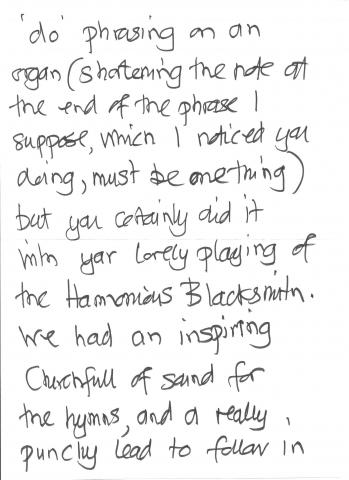 'do' phrasing on an
organ (shortening the note at
the end of the phrase I
suppose, which I noticed you
doing, must be one thing)
but you certainly did it
with your lovely playing of
the Harmonious Blacksmith.
We had an inspiring
Churchfull of sound for
the hymns, and a really,
punchy lead to follow in